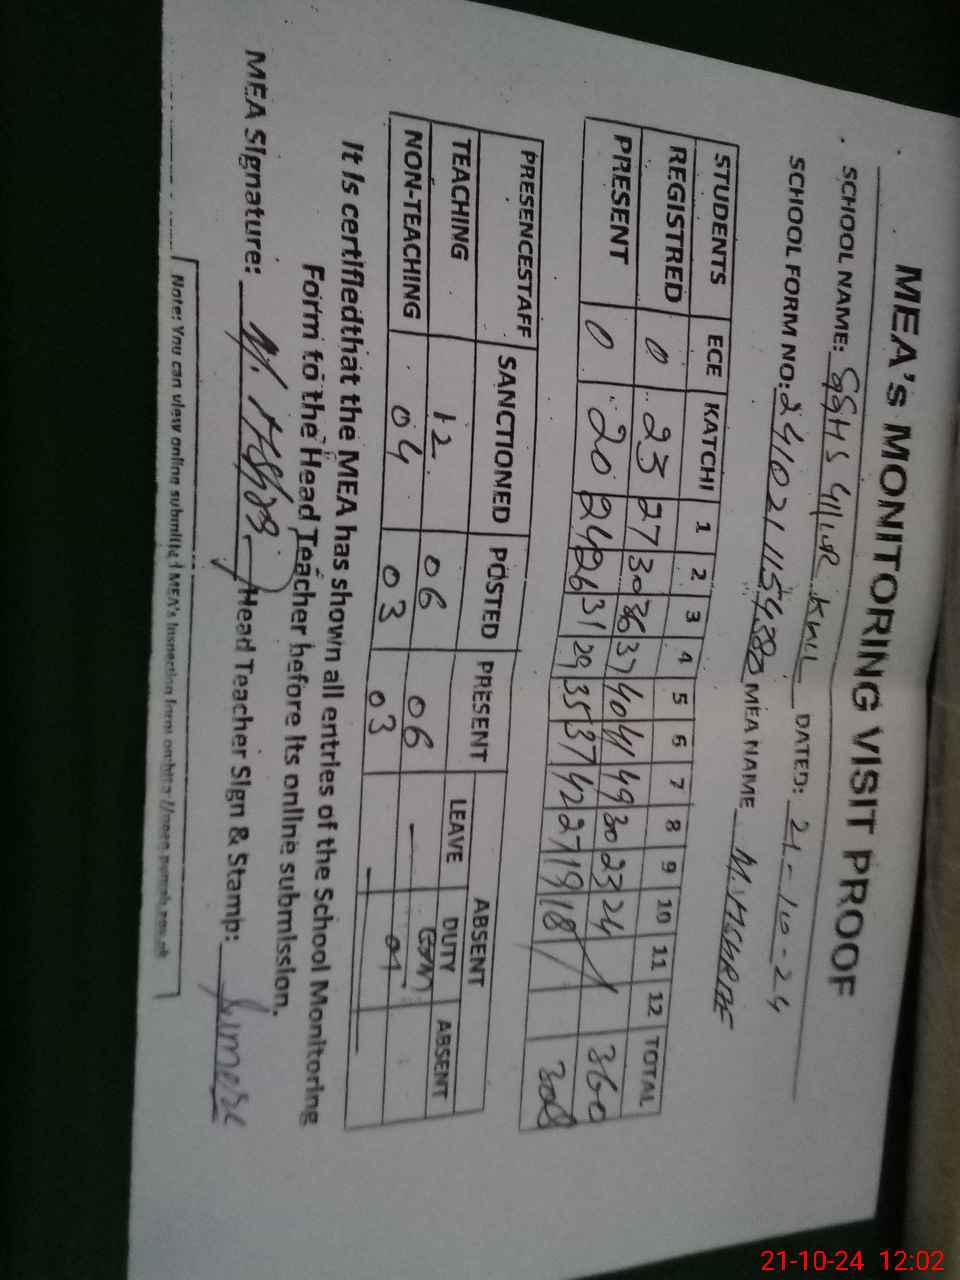 MEA'S MONITORING VISIT PROOF
SCHOOL NAME: GGHS DATED: 21-10-24
SCHOOL FORM NO: MEA NAME
STUDENTS ECE KATCHI 1 2 3 4 5 6 7 8 9 10 11 12 TOTAL
REGISTRED 0 23 27 30 36 37 40 41 49 30 23 24 360
PRESENT 0 20 24 26 31 29 35 37 42 27 19 18 308
PRESENCESTAFF SANCTIONED POSTED PRESENT ABSENT
LEAVE DUTY ABSENT
TEACHING 12 06 06 —
NON-TEACHING 04 03 03 —
It is certifiedthat the MEA has shown all entries of the School Monitoring
Form to the Head Teacher before its online submission.
MEA Signature: Head Teacher Sign & Stamp:
Note: You can view online submitted MEA's Inspection form on
21-10-24 12:02